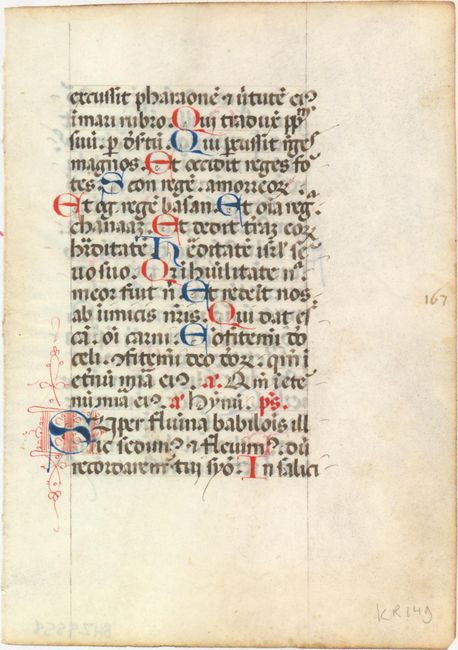 excussit pharaonē ⁊ v̄tutē eiꝰ
i mari rubro. Qui traduxͭ pp̄ꝫ
suū. p̱ dꝫstū. Qui ꝑcussit reges
magnos. Et occidit reges fo
tes. Seon regē. amorreoꝝ
Et og regē basan. Et oīa reg.
chanaaꝫ. Et dedit tr̄aꝫ eoꝝ
h'ditatē Heditatē isrl' s
uo suo. Qꝛ i hūilitate n.
meor fuit n̄ Et redeīt nos
ab iimicis nr̄is. Qui dat es
cā. oī carni. Cōfitemī d
celi. ꝯfitemī deo doꝝ. qm̄ i
et'nū mīa eiꝰ. a'. Qm̄ i ete
nū mīa eiꝰ. a' Hyni. ps̄.
Suꝑ flumīa babilōis ill
ic sedimꝰ ⁊ fleuimꝰ. dū
recordarem' tui syō. In salici
167
KR149